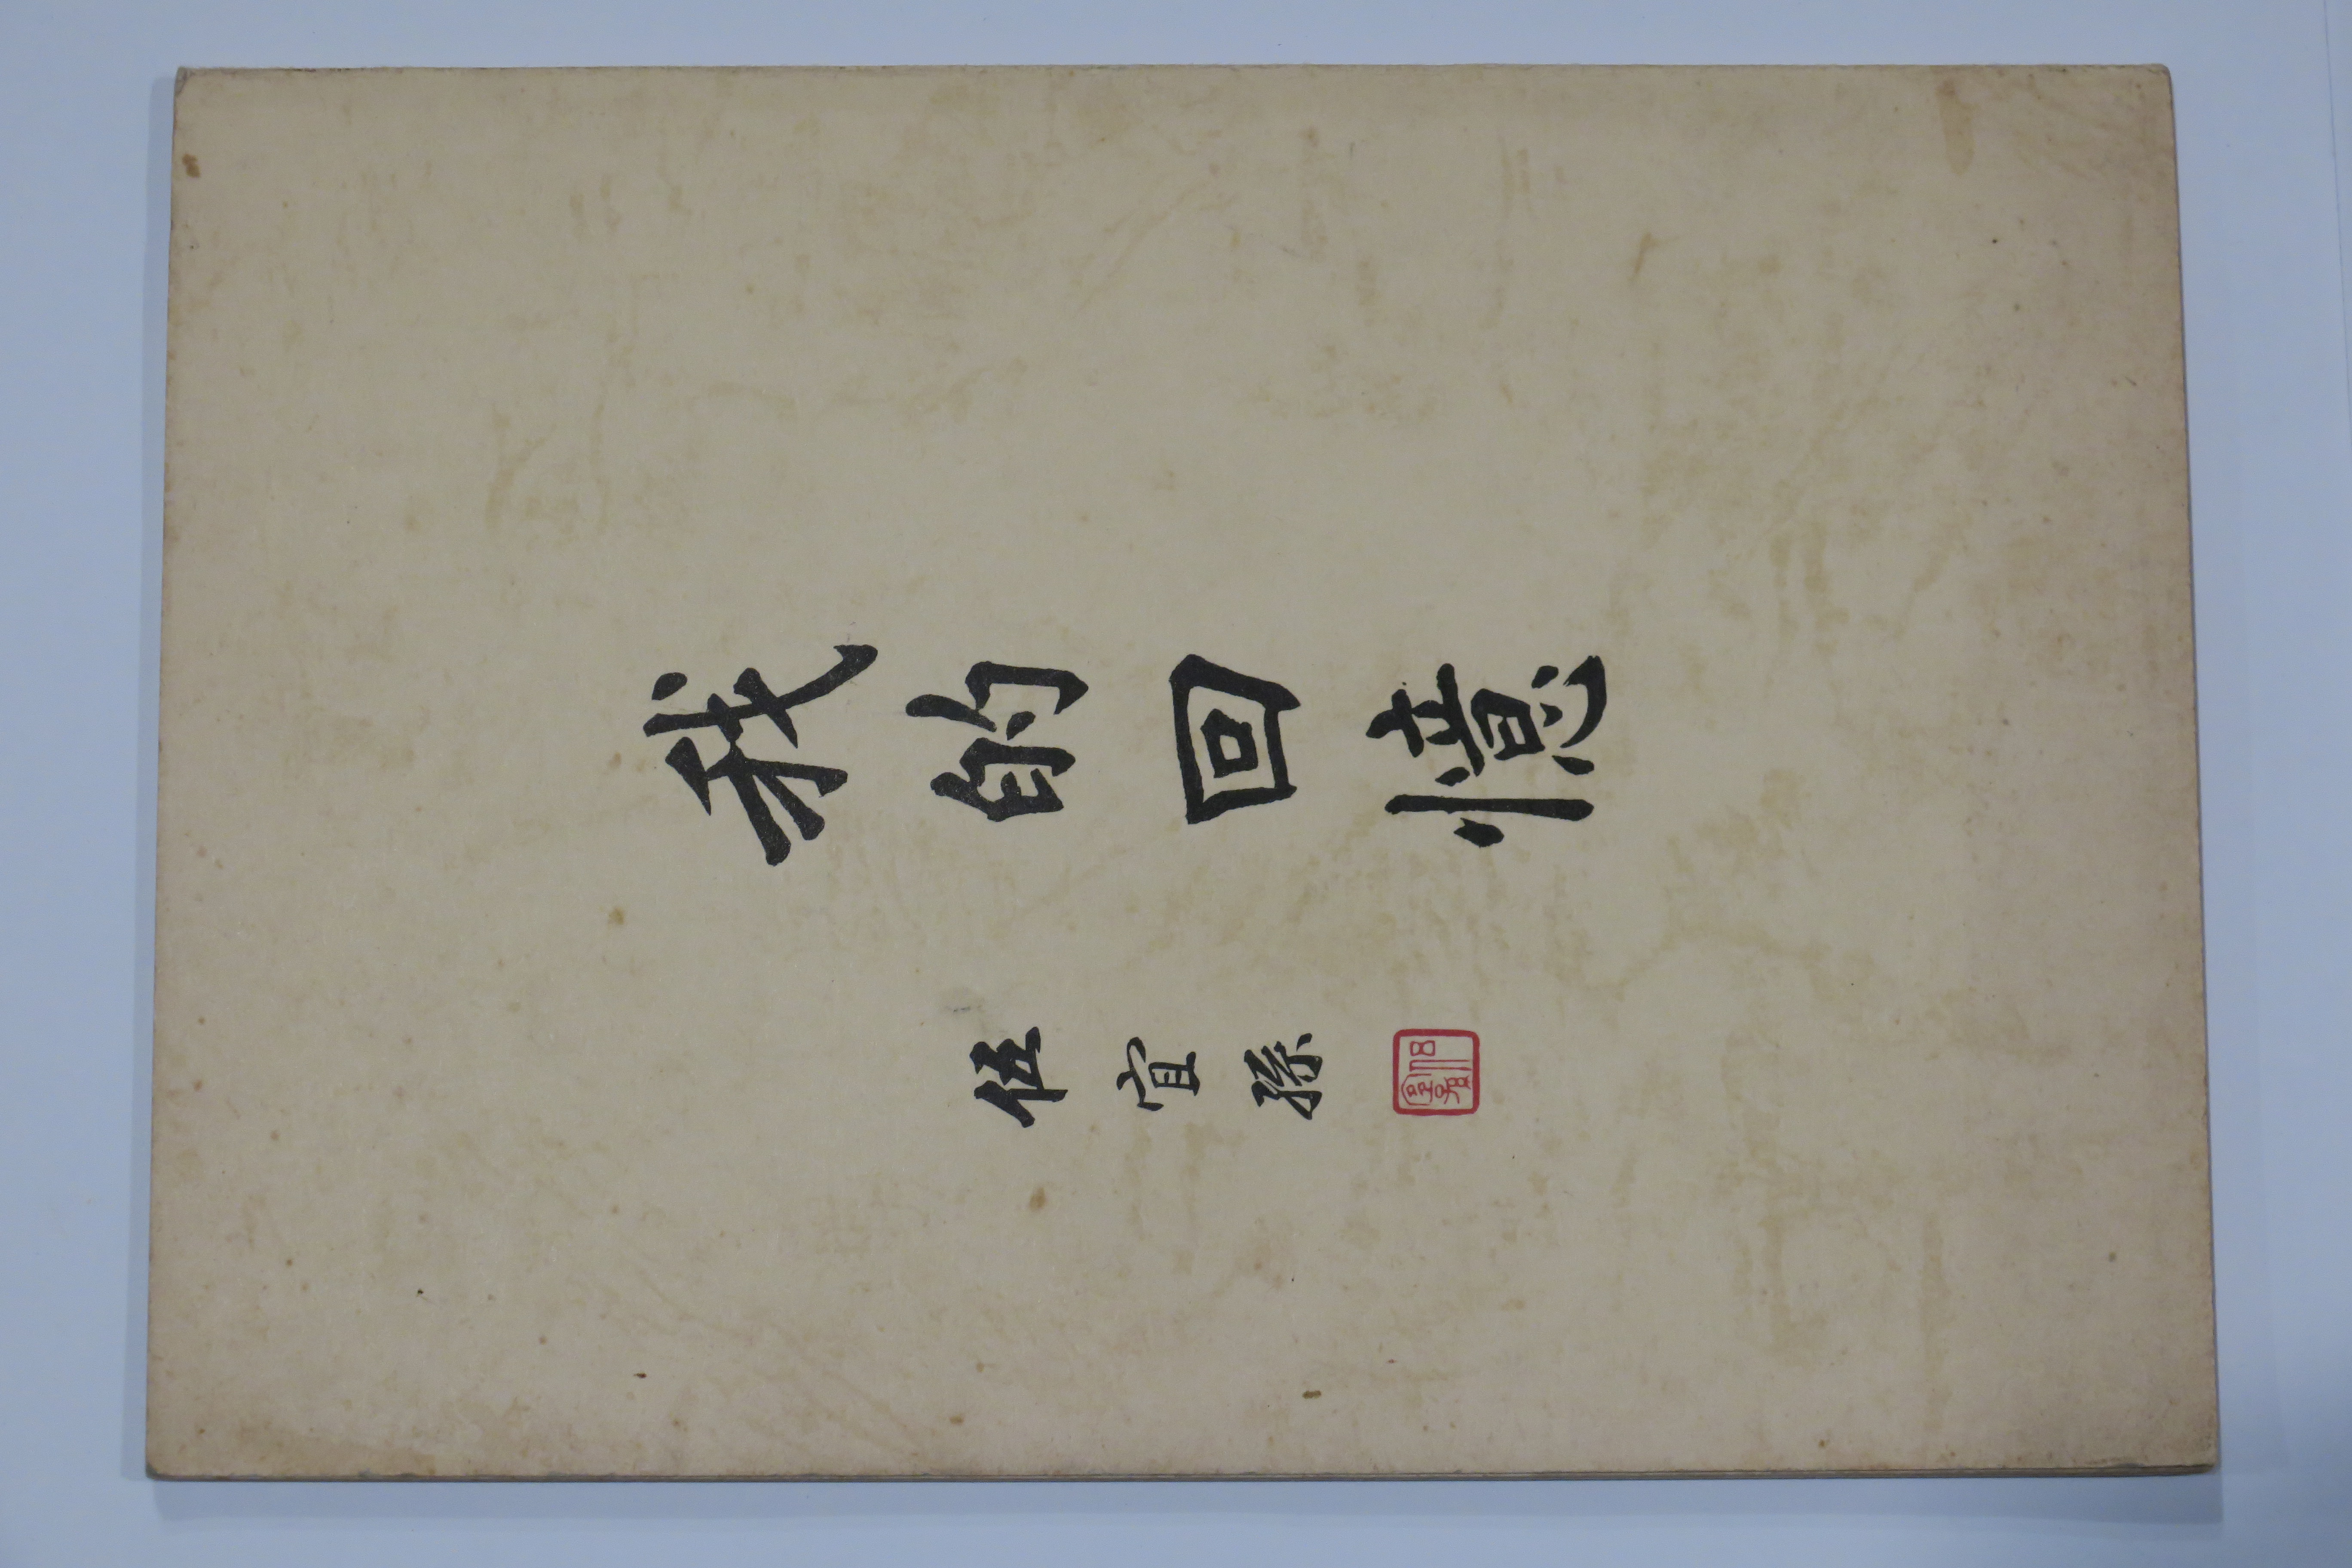 我的回憶
伍宜孫